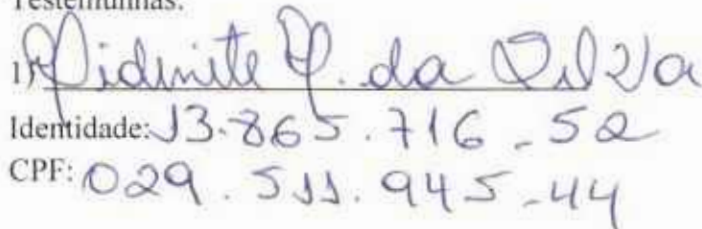 Testemunhas:
1) da Silva
Identidade: 13.865.716-52
CPF: 029.511.945-44